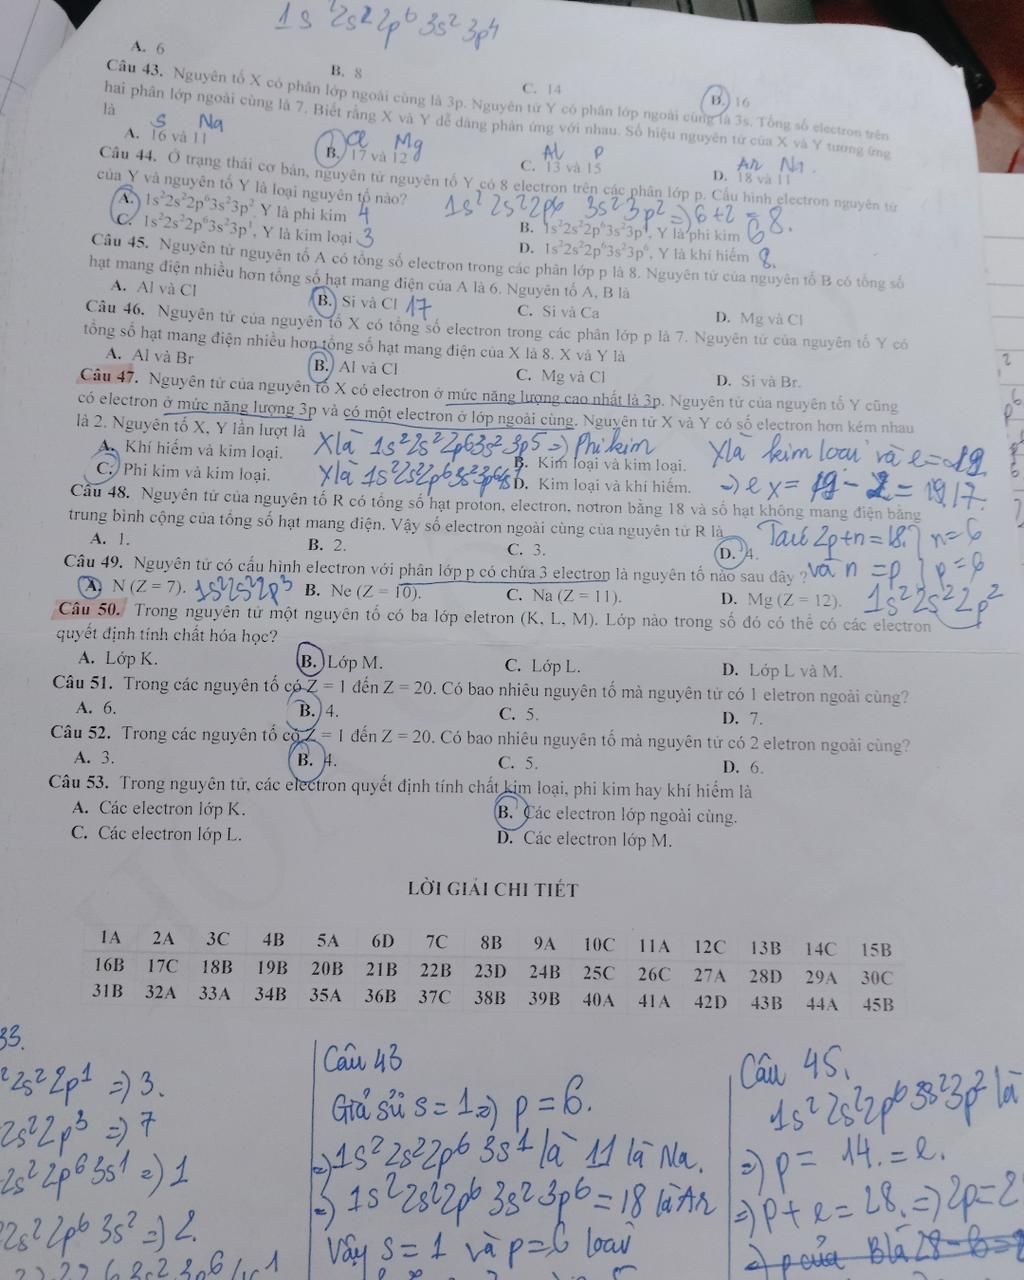 1s² 2s² 2p⁶ 3s² 3p⁴
A. 6 B. 8 C. 14 D. 16
Câu 43. Nguyên tố X có phân lớp ngoài cùng là 3p. Nguyên tử Y có phân lớp ngoài cùng là 3s. Tổng số electron trên
hai phân lớp ngoài cùng là 7. Biết rằng X và Y dễ dàng phản ứng với nhau. Số hiệu nguyên tử của X và Y tương ứng
là
S Na Cl Mg Al P Ar Na.
A. 16 và 11 B. 17 và 12 C. 13 và 15 D. 18 và 11
Câu 44. Ở trạng thái cơ bản, nguyên tử nguyên tố Y có 8 electron trên các phân lớp p. Cấu hình electron nguyên tử
của Y và nguyên tố Y là loại nguyên tố nào?
1s² 2s² 2p⁶ 3s² 3p² => 6+2 = 8.
A. 1s²2s²2p⁶3s²3p², Y là phi kim 4 B. 1s²2s²2p⁶3s²3p⁴, Y là phi kim 6
C. 1s²2s²2p⁶3s²3p¹, Y là kim loại 3 D. 1s²2s²2p⁶3s²3p⁶, Y là khí hiếm 8.
Câu 45. Nguyên tử nguyên tố A có tổng số electron trong các phân lớp p là 8. Nguyên tử của nguyên tố B có tổng số
hạt mang điện nhiều hơn tổng số hạt mang điện của A là 6. Nguyên tố A, B là
A. Al và Cl B. Si và Cl 17 C. Si và Ca D. Mg và Cl
Câu 46. Nguyên tử của nguyên tố X có tổng số electron trong các phân lớp p là 7. Nguyên tử của nguyên tố Y có
tổng số hạt mang điện nhiều hơn tổng số hạt mang điện của X là 8. X và Y là
A. Al và Br B. Al và Cl C. Mg và Cl D. Si và Br.
Câu 47. Nguyên tử của nguyên tố X có electron ở mức năng lượng cao nhất là 3p. Nguyên tử của nguyên tố Y cũng
có electron ở mức năng lượng 3p và có một electron ở lớp ngoài cùng. Nguyên tử X và Y có số electron hơn kém nhau
là 2. Nguyên tố X, Y lần lượt là
X là 1s²2s²2p⁶3s²3p⁵ => Phi kim
A. Khí hiếm và kim loại. B. Kim loại và kim loại.
X là kim loại và e = 19
C. Phi kim và kim loại. D. Kim loại và khí hiếm.
=> e X = 19 - 2 = 17.
Câu 48. Nguyên tử của nguyên tố R có tổng số hạt proton, electron, nơtron bằng 18 và số hạt không mang điện bằng
trung bình cộng của tổng số hạt mang điện. Vậy số electron ngoài cùng của nguyên tử R là
A. 1. B. 2. C. 3. D. 4.
Ta có 2p+n = 18. n = 6
và n = p p = 6
Câu 49. Nguyên tử có cấu hình electron với phân lớp p có chứa 3 electron là nguyên tố nào sau đây ?
A. N (Z = 7). 1s²2s²2p³ B. Ne (Z = 10). C. Na (Z = 11). D. Mg (Z = 12). 1s²2s²2p²
Câu 50. Trong nguyên tử một nguyên tố có ba lớp eletron (K, L, M). Lớp nào trong số đó có thể có các electron
quyết định tính chất hóa học?
A. Lớp K. B. Lớp M. C. Lớp L. D. Lớp L và M.
Câu 51. Trong các nguyên tố có Z = 1 đến Z = 20. Có bao nhiêu nguyên tố mà nguyên tử có 1 eletron ngoài cùng?
A. 6. B. 4. C. 5. D. 7.
Câu 52. Trong các nguyên tố có Z = 1 đến Z = 20. Có bao nhiêu nguyên tố mà nguyên tử có 2 eletron ngoài cùng?
A. 3. B. 4. C. 5. D. 6.
Câu 53. Trong nguyên tử, các electron quyết định tính chất kim loại, phi kim hay khí hiếm là
A. Các electron lớp K. B. Các electron lớp ngoài cùng.
C. Các electron lớp L. D. Các electron lớp M.
LỜI GIẢI CHI TIẾT
1A 2A 3C 4B 5A 6D 7C 8B 9A 10C 11A 12C 13B 14C 15B
16B 17C 18B 19B 20B 21B 22B 23D 24B 25C 26C 27A 28D 29A 30C
31B 32A 33A 34B 35A 36B 37C 38B 39B 40A 41A 42D 43B 44A 45B
33.
²2s²2p¹ => 3.
2s²2p³ => 7
2s²2p⁶3s¹ => 1
2s²2p⁶3s² => 2.
Câu 43
Giả sử s = 1 => p = 6.
=> 1s²2s²2p⁶3s¹ là 11 là Na.
=> 1s²2s²2p⁶3s²3p⁶ = 18 là Ar
Vậy s = 1 và p = 6 loại
Câu 45.
1s²2s²2p⁶3s²3p² là
=> p = 14. = e.
=> p + e = 28. => 2p = 2